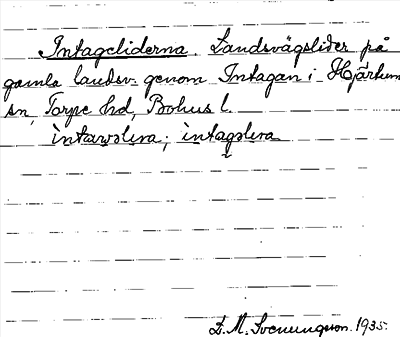 Intageliderna. Landsvägslider på
gamla landsv. genom Intagan i Hjärtum
sn, Torpe hd, Bohus l.
intawslıra; intagslıra
D. M. Svenungsson. 1935.